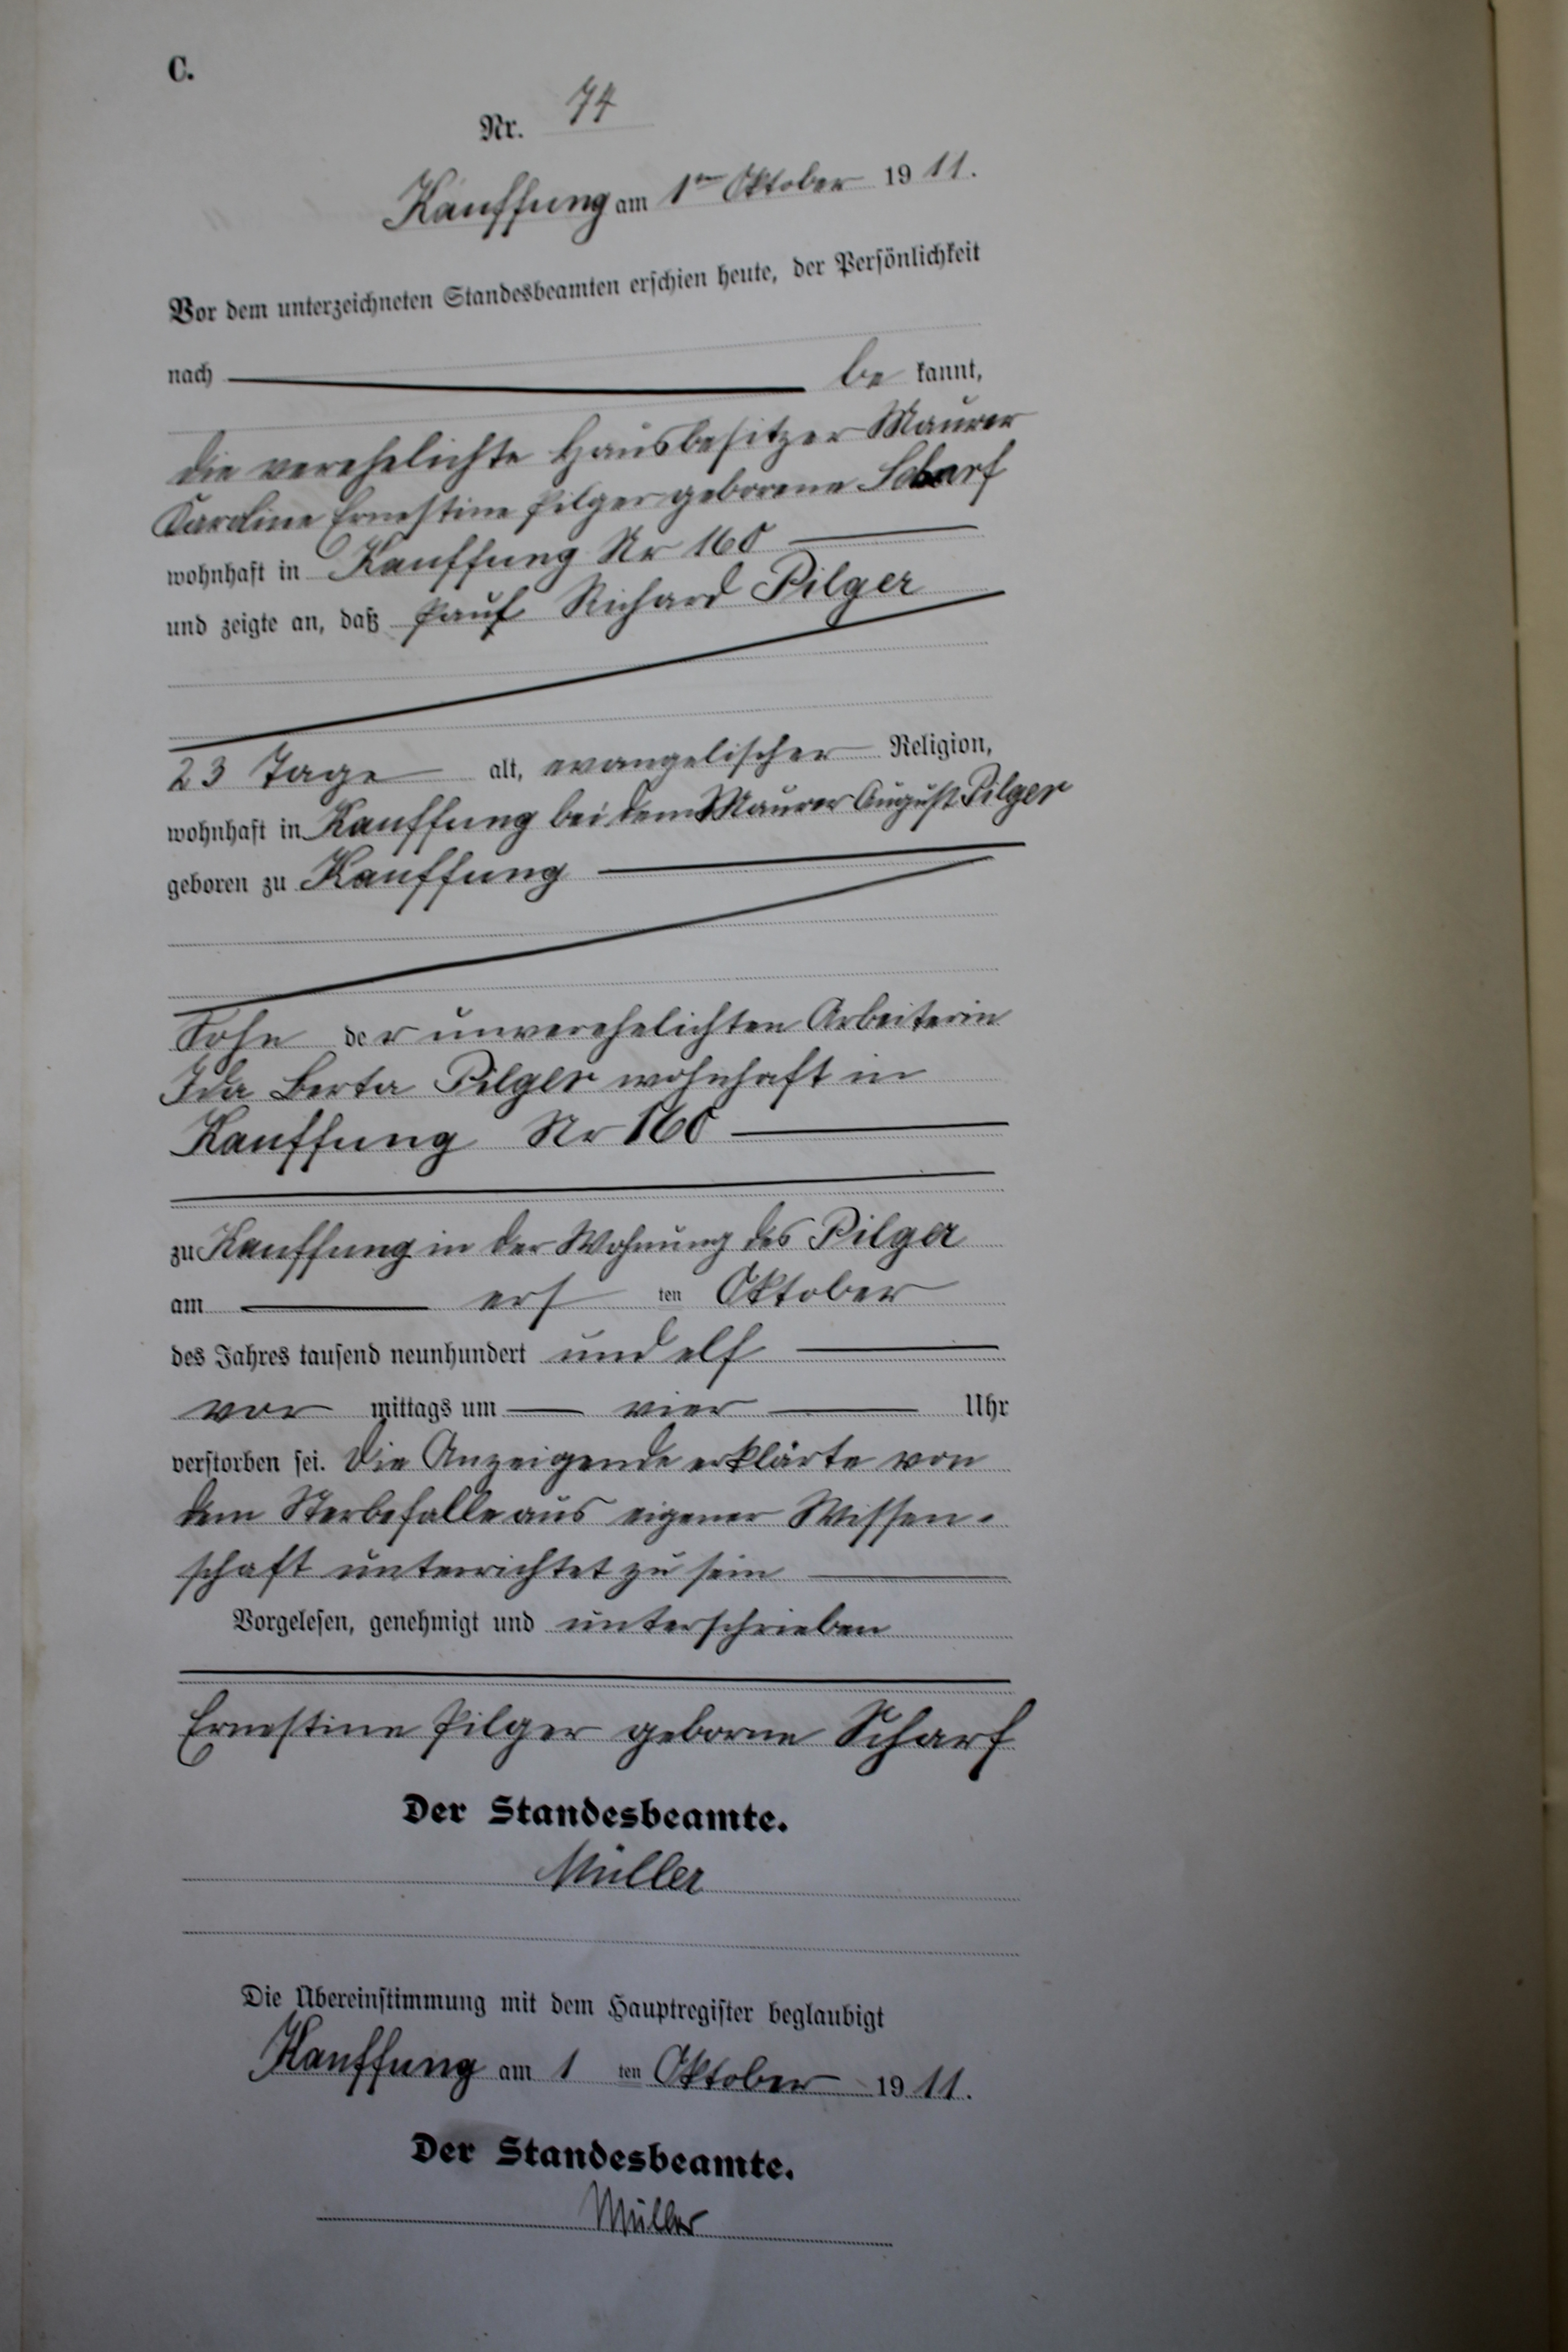 C.
Nr. 74
Kauffung am 1ten Oktober 1911.
Vor dem unterzeichneten Standesbeamten erschien heute, der Persönlichkeit
nach be kannt,
die verehelichte Hausbesitzer Maurer
Karoline Ernestine Pilger geborene Scharf
wohnhaft in Kauffung Nr 160
und zeigte an, daß Paul Richard Pilger
23 Tage alt, evangelischer Religion,
wohnhaft in Kauffung bei dem Maurer August Pilger
geboren zu Kauffung
Sohn der unverehelichten Arbeiterin
Ida Berta Pilger wohnhaft in
Kauffung Nr 160
zu Kauffung in der Wohnung des Pilger
am ers ten Oktober
des Jahres tausend neunhundert und elf
vor mittags um vier Uhr
verstorben sei. Die Anzeigende erklärte von
dem Sterbefalle aus eigener Wissen-
schaft unterrichtet zu sein
Vorgelesen, genehmigt und unterschrieben
Ernestine Pilger geborne Scharf
Der Standesbeamte.
Müller
Die Übereinstimmung mit dem Hauptregister beglaubigt
Kauffung am 1 ten Oktober 1911.
Der Standesbeamte.
Müller